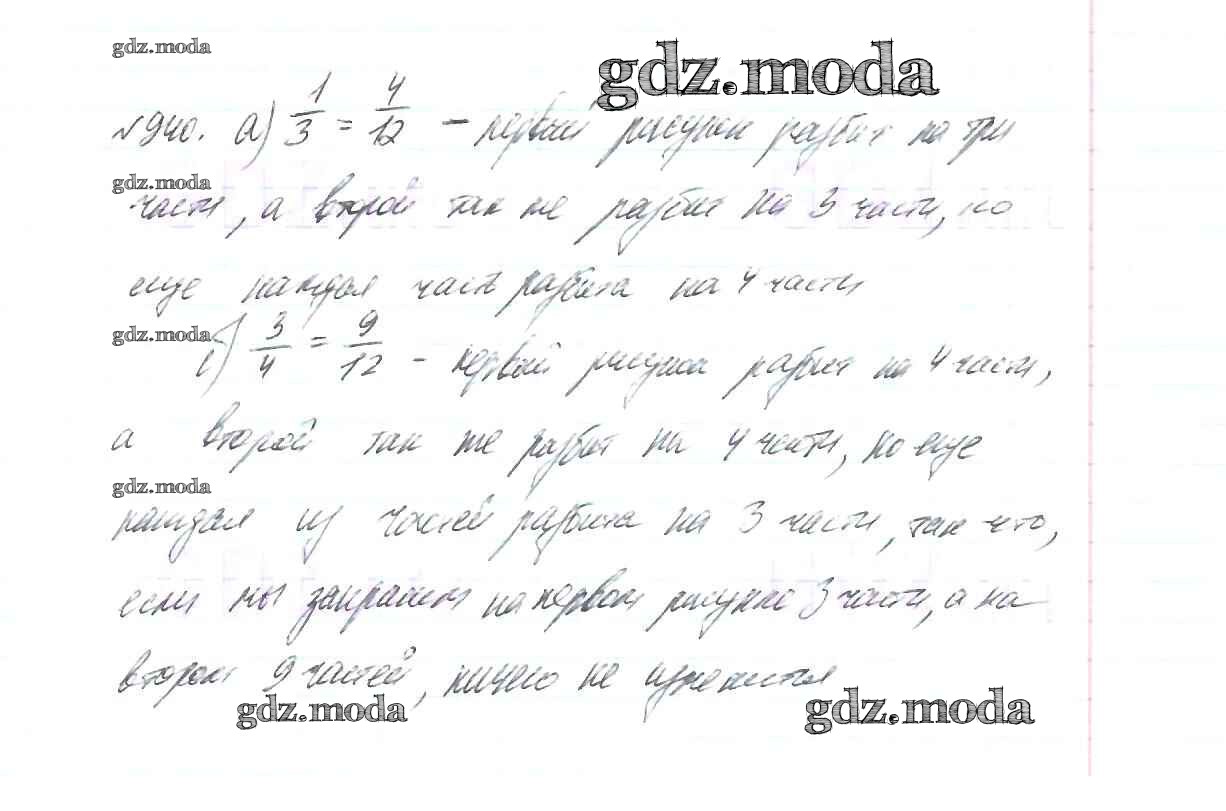 gdz.moda
gdz.moda
№940. а) 1/3 = 4/12 – первый рисунок разбит на три
gdz.moda
части, а второй так же разбит на 3 части, но
еще каждая часть разбита на 4 части
gdz.moda
б) 3/4 = 9/12 – первый рисунок разбит на 4 части,
а второй так же разбит на 4 части, но еще
gdz.moda
каждая из частей разбита на 3 части, так что,
если мы закрасим на первом рисунке 3 части, а на
втором 9 частей, ничего не изменится
gdz.moda
gdz.moda